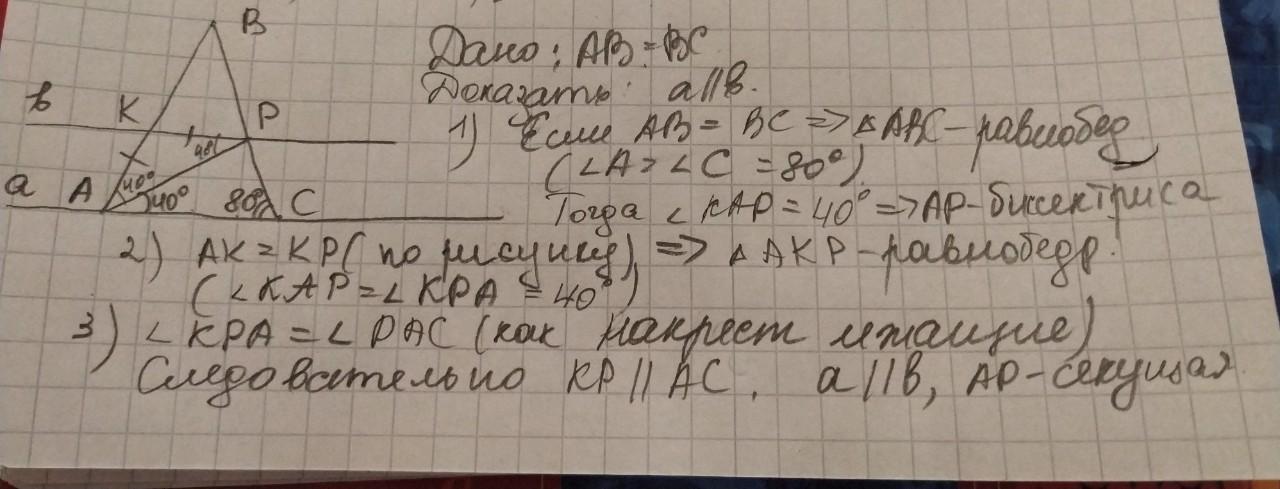 B
Дано: AB = BC
Доказать: a∥b.
в K P
1) Если AB = BC => △ABC - равнобед
(∠A = ∠C = 80°)
40°
a A 40° 40° 80° C
Тогда ∠KAP = 40° => AP - биссектриса
2) AK = KP (по рисунку) => △AKP - равнобедр.
(∠KAP = ∠KPA = 40°)
3) ∠KPA = ∠PAC (как накрест лежащие)
Следовательно KP ∥ AC, a∥b, AP - секущая.